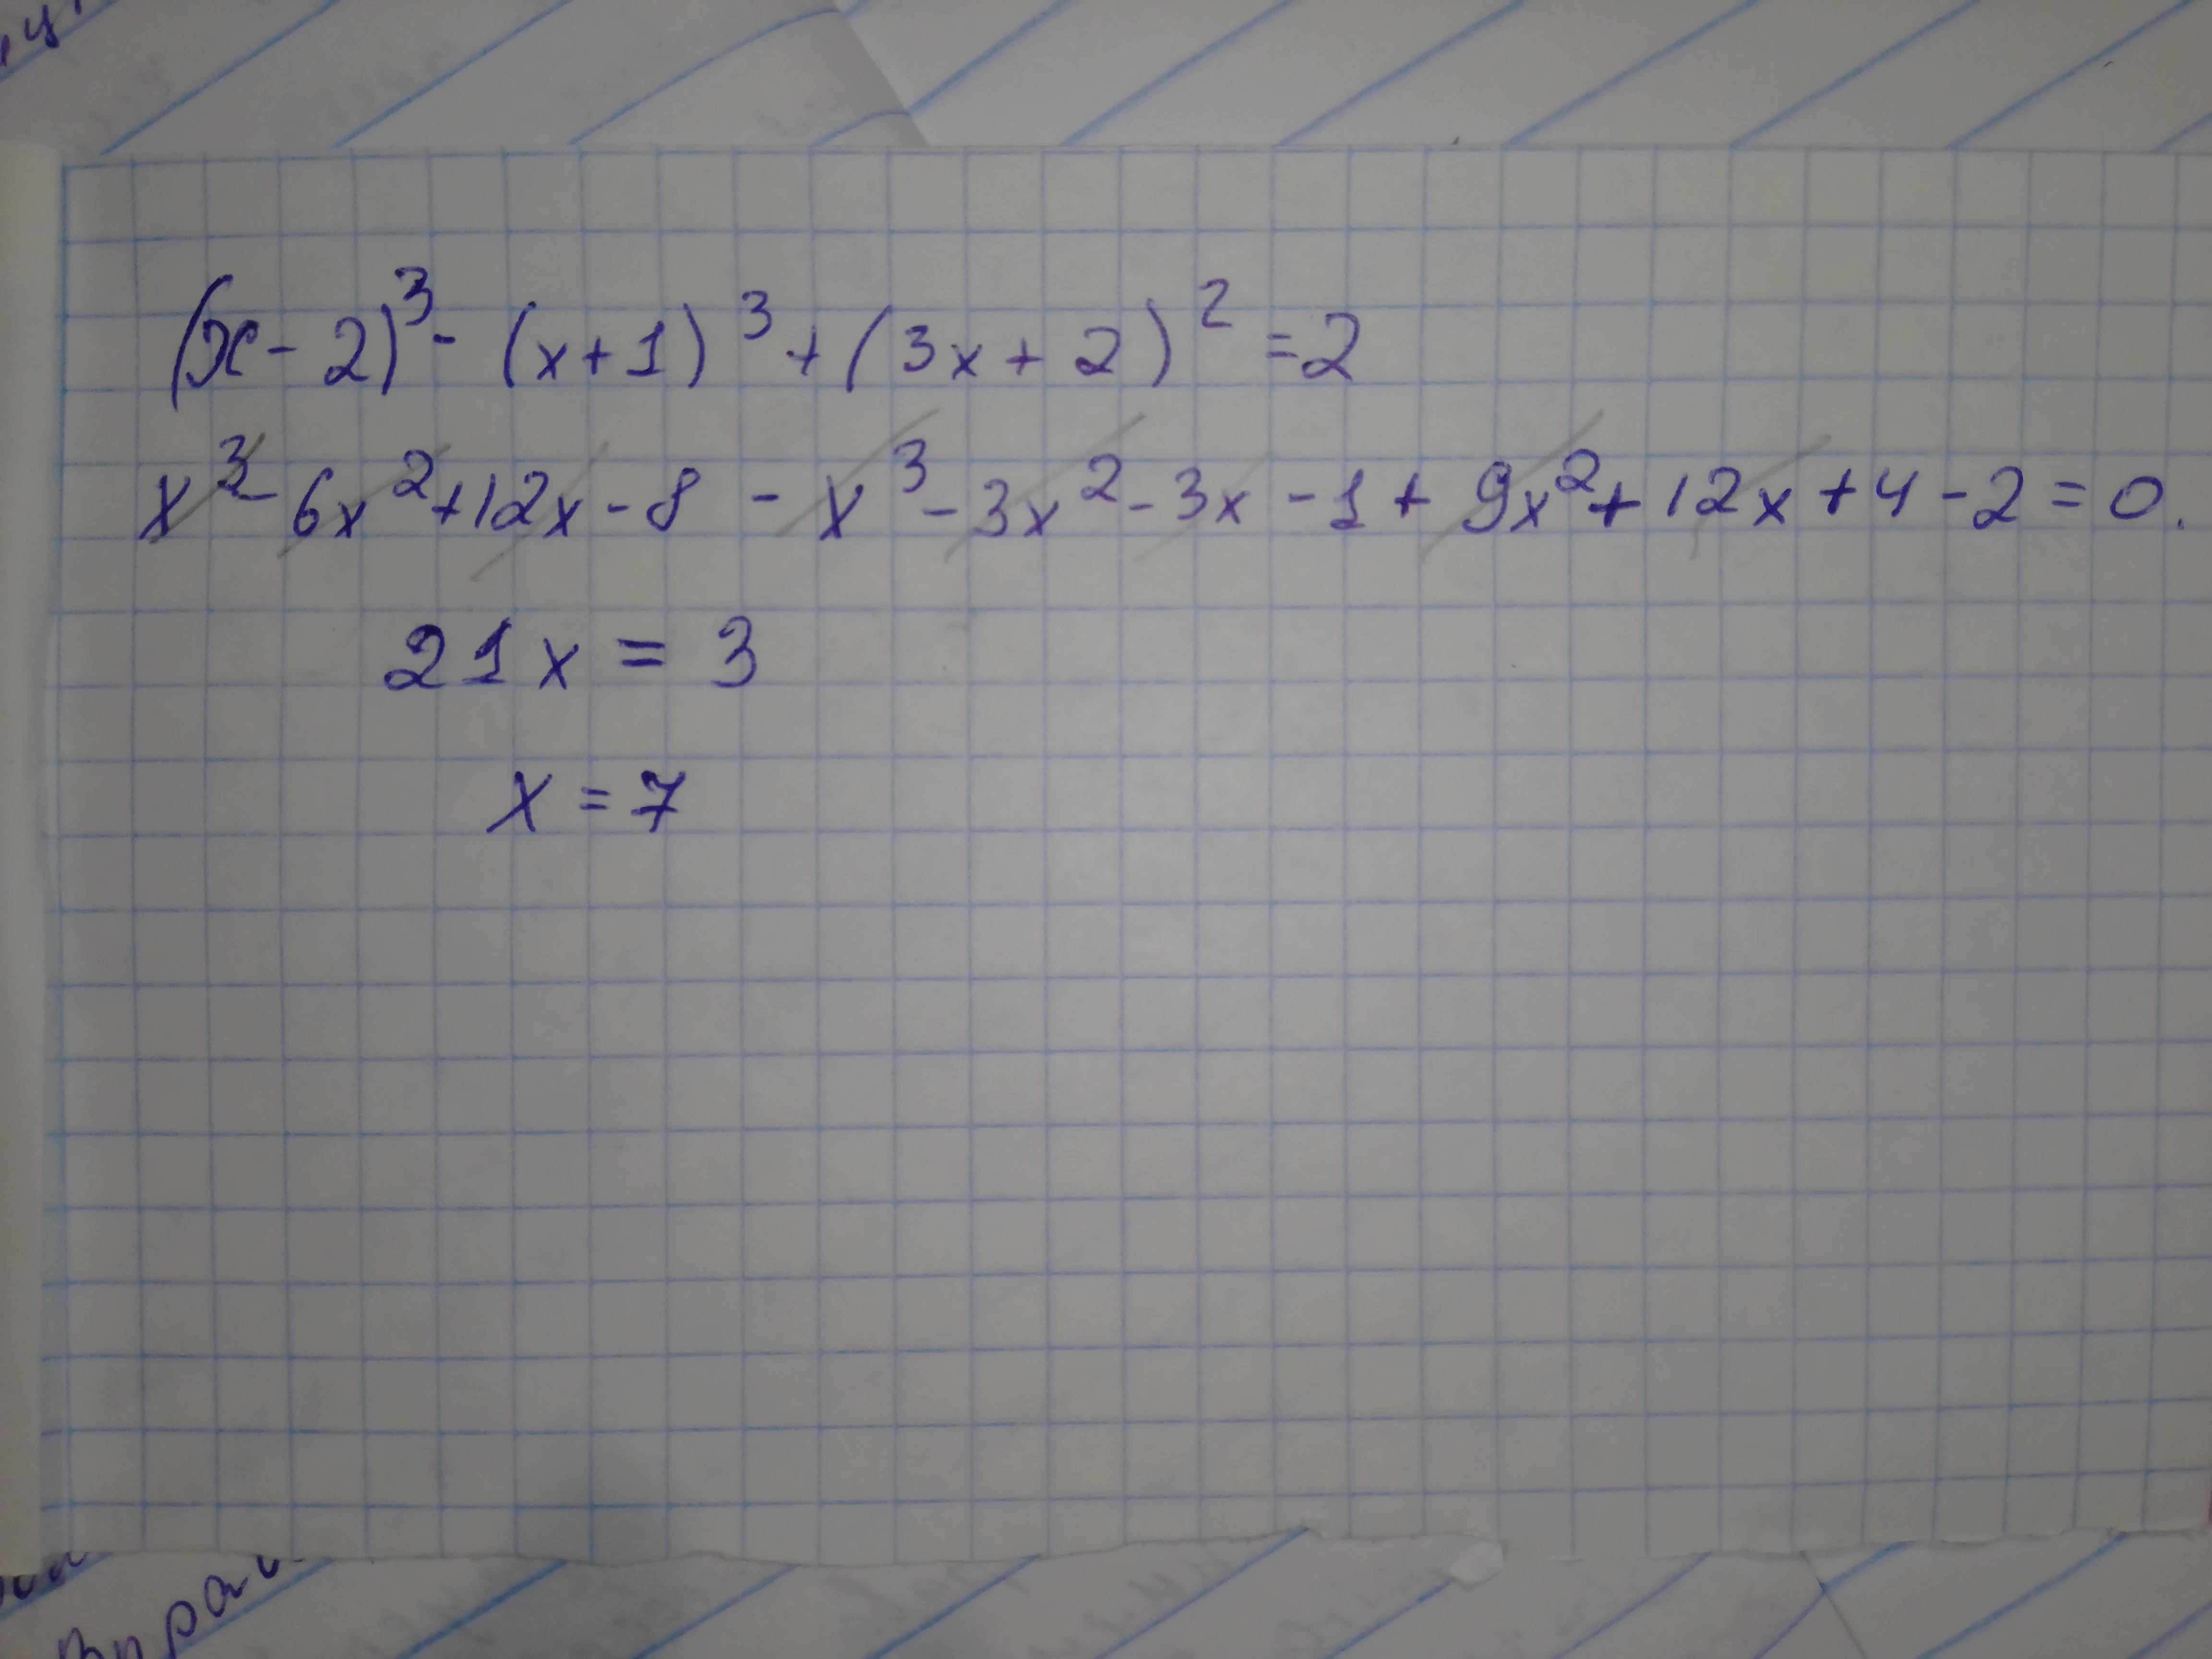 (x-2)³ - (x+1)³ + (3x+2)² = 2
x³ - 6x² + 12x - 8 - x³ - 3x² - 3x - 1 + 9x² + 12x + 4 - 2 = 0.
21x = 3
x = 7